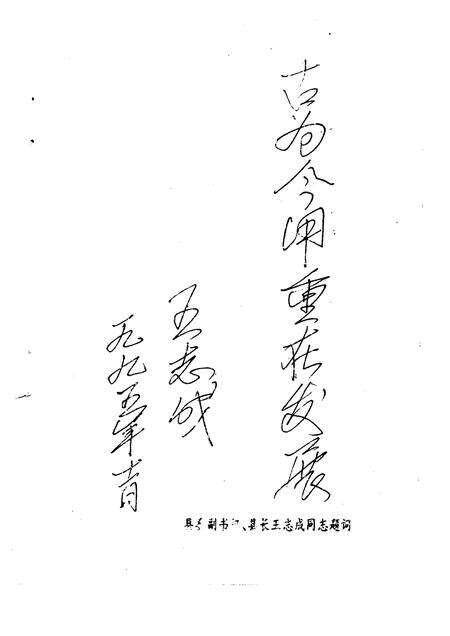 古为今用重在发展
王志成
一九九五年十月
县委副书记、县长王志成同志题词